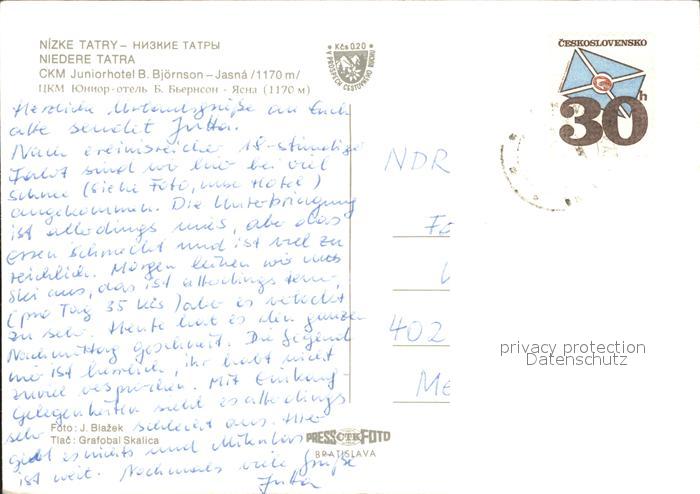 NÍZKE TATRY – НИЗКИЕ ТАТРЫ
NIEDERE TATRA
CKM Juniorhotel B. Björnson – Jasná /1170 m/
ЦКМ Юниор-отель Б. Бьернсон - Ясна (1170 м)
Kčs 0.20
V PROSPECH CESTOVNÉHO RUCHU
ČESKOSLOVENSKO
30 h
Herzliche Urlaubsgrüße an Euch
alle sendet Jutta.
Nach ereignisreicher 18-stündiger
Fahrt sind wir hier bei viel
Schnee (siehe Foto, unser Hotel)
angekommen. Die Unterbringung
ist allerdings mies, aber das
Essen schmeckt und ist viel zu
reichlich. Morgen leihen wir uns
Ski aus, das ist allerdings teuer,
(pro Tag 35 Kčs) aber es verlockt
zu sehr. Heute hat es den ganzen
Nachmittag geschneit. Die Gegend
hier ist herrlich, ihr habt nicht
zuviel versprochen. Mit Einkauf-
Gelegenheiten sieht es allerdings
sehr schlecht aus. Hier
gibt es nichts und Mikulas
ist weit. Nochmals viele Grüße
Jutta
NDR
Fa
402
Me
privacy protection
Datenschutz
Foto: J. Blažek
Tlač: Grafobal Skalica
PRESSFOTO
ČTK
BRATISLAVA